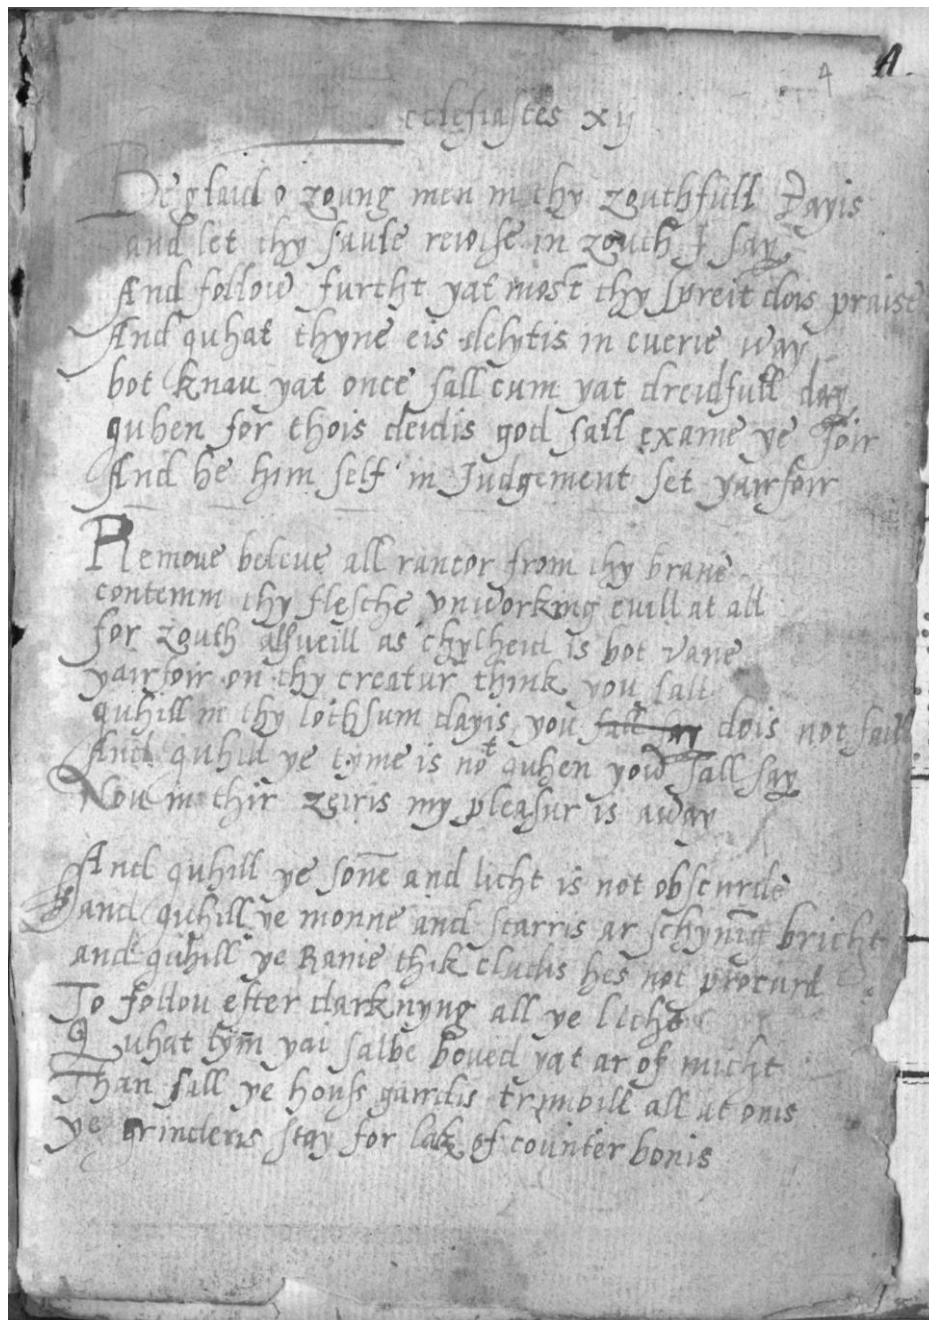 4 A
cclesiastes xij
Be glaid o zoung men in thy zouthfull Dayis
and let thy saule reioise in zouth I say
And follow furtht yat most thy spreit dois praise
And quhat thyne eis delytis in euerie way
bot knau yat once sall cum yat dreidfull day
quhen for thois deidis god sall exame ye soir
And he him self in Judgement set yairfoir
Remoue beleue all rancor from thy brane
contemm thy flesche vnworking euill at all
for zouth alsueill as chylheid is bot vane
yairfoir on thy creatur think you sall
quhill in thy lothsum dayis you sall say dois not fall
And quhill ye tyme is not quhen yow sall say
Nou in thir zeiris my pleasur is away
And quhill ye sone and licht is not obscurde
and quhill ye monne and starris ar schynīg bricht
and quhill ye Ranie thik cludis hes not procurd
To follou efter darknyng all ye licht
Quhat tym̄ yai salbe boued yat ar of micht
Than sall ye houss gairdis trimbill all at onis
ye grinderis stay for lak of counter bonis